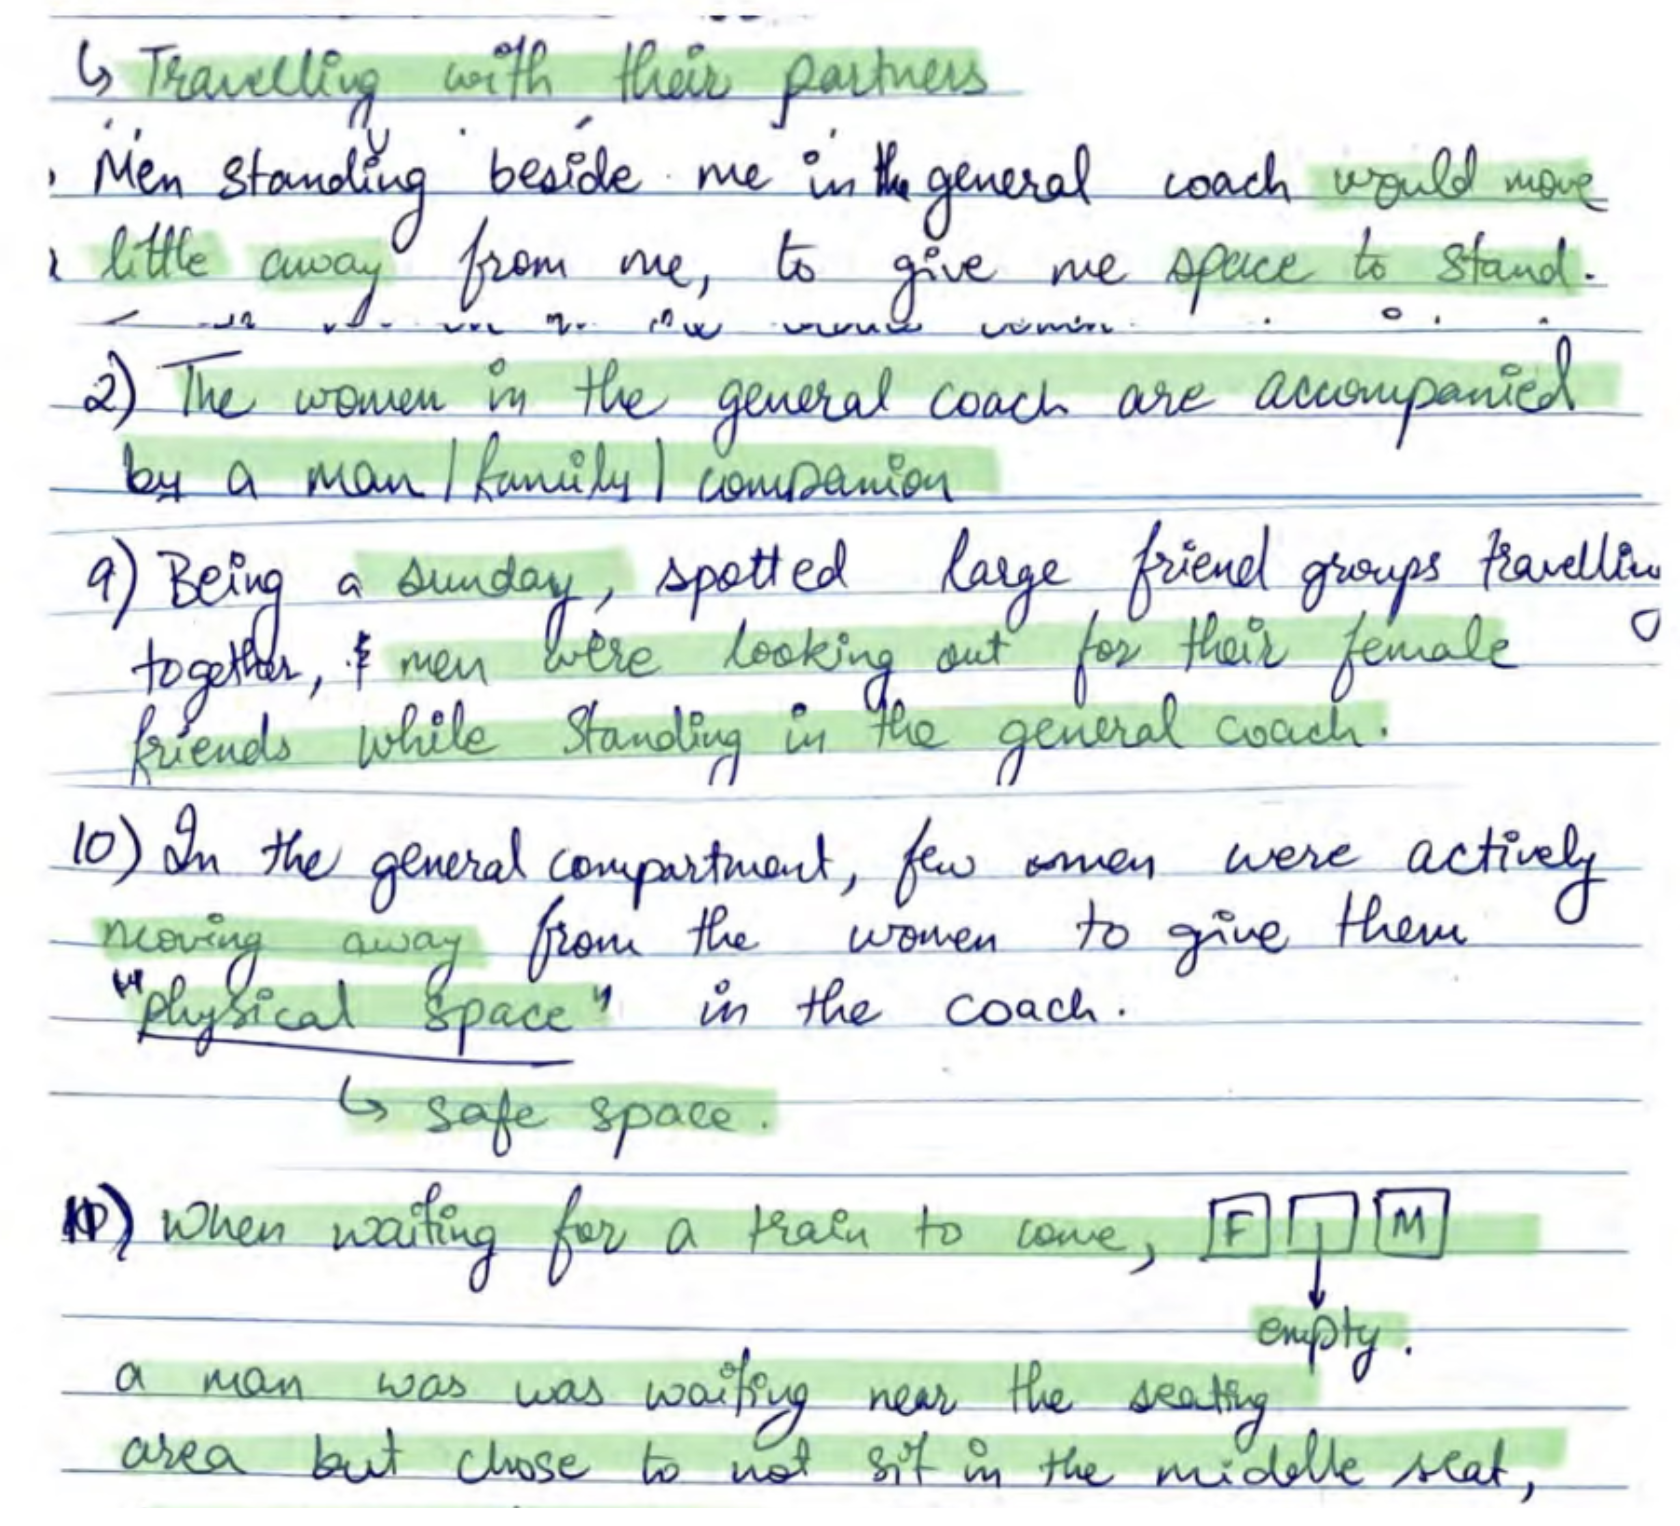 ↳ Travelling with their partners
Men standing beside me in the general coach would move
little away from me, to give me space to stand.
2) The women in the general coach are accompanied
by a man / family / companion
9) Being a sunday, spotted large friend groups travelling
together, & men were looking out for their female
friends while standing in the general coach.
10) In the general compartment, few men were actively
moving away from the women to give them
"physical space" in the coach.
↳ safe space.
11) When waiting for a train to come, F M
empty.
a man was was waiting near the seating
area but chose to not sit in the middle seat,